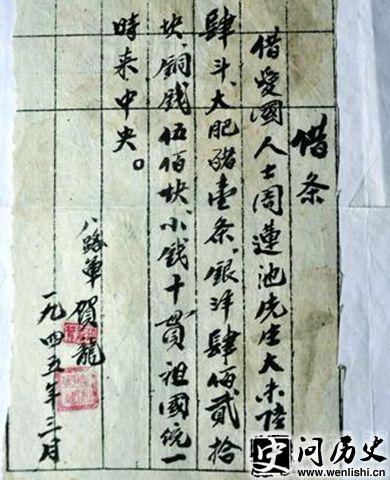 借条
借爱國人士周蓮池先生大米陸
肆斗、大肥猪壹条、銀洋肆佰贰拾
块、铜钱伍佰块、小钱十贯、祖國统一
時来中央。
八路軍 贺龍
一九四五年三月
史问历史
www.wenlishi.cn